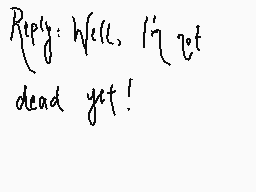 Reply: Well, I'm not
dead yet!